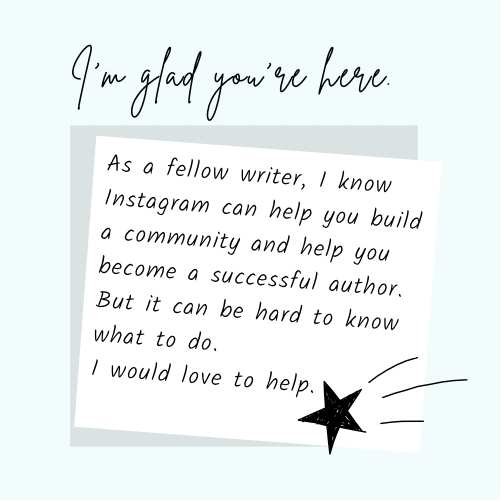 I'm glad you're here.
As a fellow writer, I know
Instagram can help you build
a community and help you
become a successful author.
But it can be hard to know
what to do.
I would love to help.